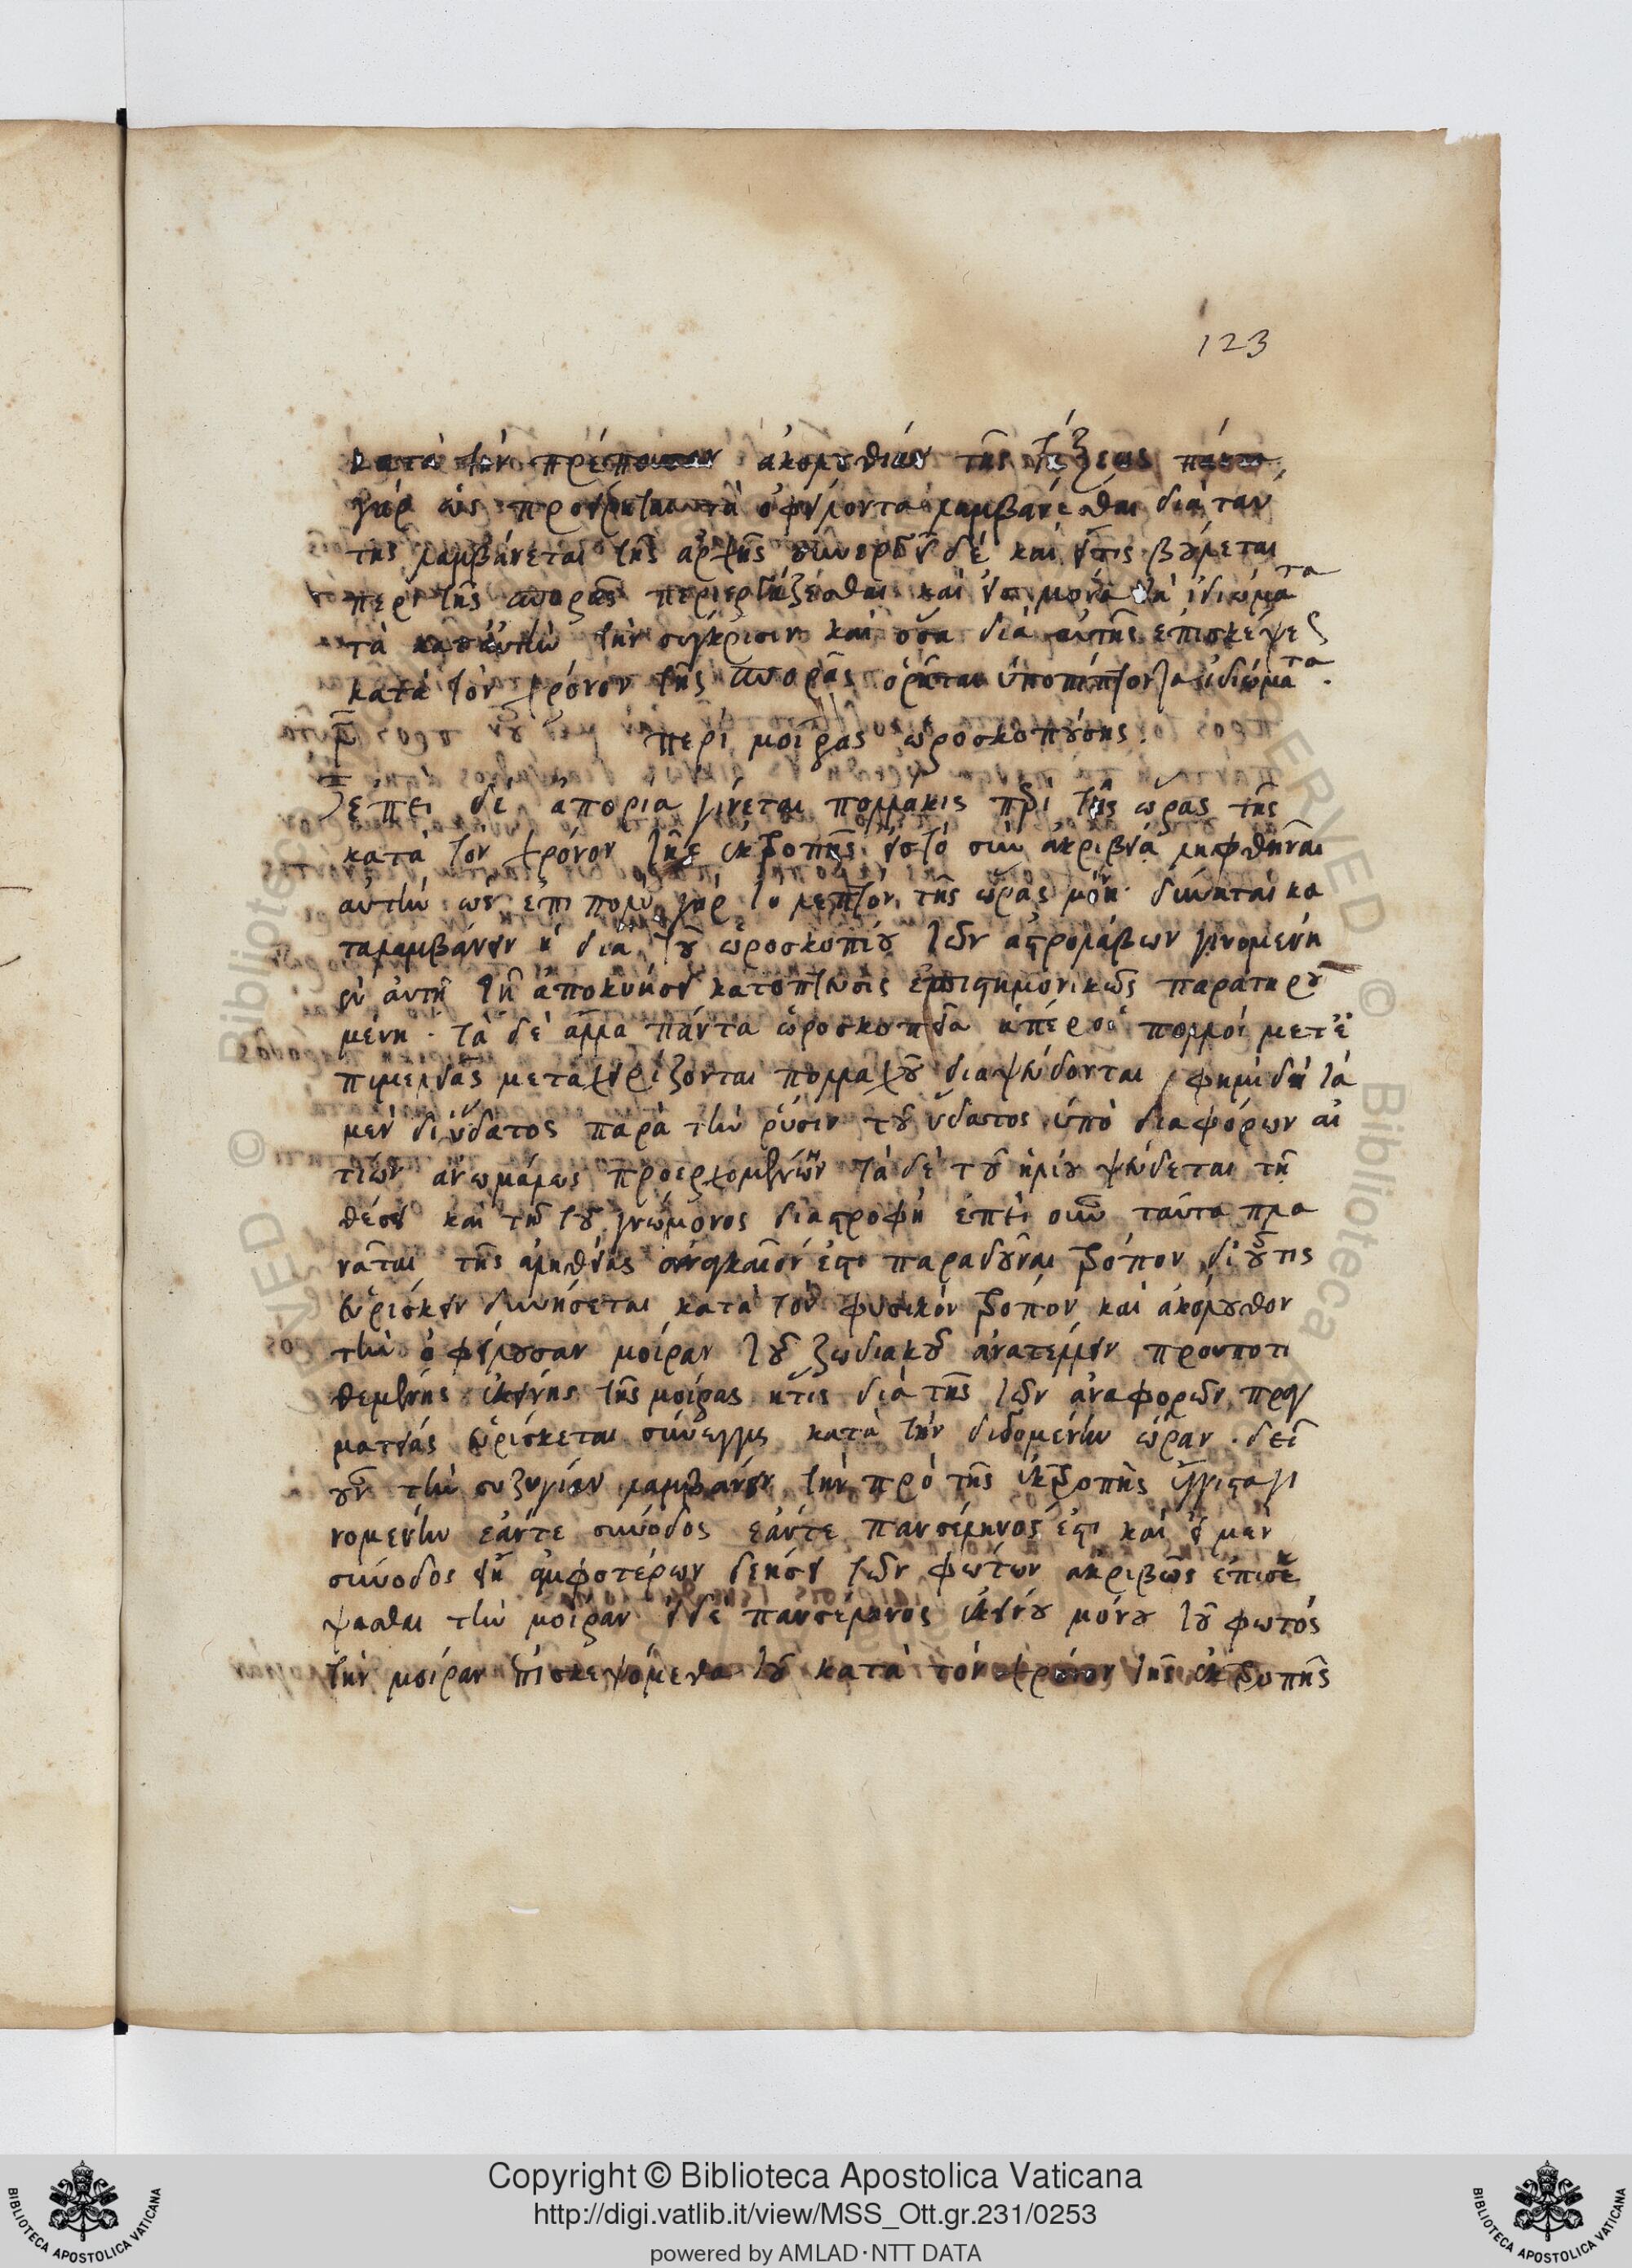 123
κατὰ τὴν πρέπουσαν ἀκολουθίαν τῆς τάξεως πάντα
γὰρ ὡς προείρηται τὰ ὀφείλοντα λαμβάνεσθαι διὰ ταύ
της λαμβάνεται τῆς ἀρχῆς συνορᾶν δὲ καὶ εἴ τις βούλεται
περὶ τῆς σπορᾶς περιεργάζεσθαι καὶ μόνα τὰ ἰδιώματα
τὰ κατ' αὐτὴν τὴν σύγκρισιν καὶ ὅσα διὰ αὐτῆς ἐπισκέψεως
κατὰ τὸν χρόνον τῆς σπορᾶς ὁρᾶται ὑποπίπτοντα ἰδιώματα.
περὶ μοίρας ὡροσκοπούσης.
ἐπεὶ δὲ ἀπορία γίνεται πολλάκις περὶ τῆς ὥρας τῆς
κατὰ τὸν χρόνον τῆς ἐκτροπῆς εἰς τὸ σὺν ἀκριβείᾳ ληφθῆναι
αὐτὴν ὡς ἐπὶ πολὺ γὰρ τὸ λεπτὸν τῆς ὥρας μόνη δύνηται κα
ταλαμβάνειν ἡ διὰ τοῦ ὡροσκοπίου τῶν ἀστρολάβων γινομένη
ἐν αὐτῇ τῇ ἀποκυήσει κατόπτευσις ἐπιστημονικῶς παρατηρου
μένη. τὰ δὲ ἄλλα πάντα ὡροσκοπεῖα ἅπερ οἱ πολλοὶ μετ' ἐ
πιμελείας μεταχειρίζονται πολλαχοῦ διαψεύδονται φημὶ δὴ τὰ
μὲν δι' ὕδατος παρὰ τὴν ῥύσιν τοῦ ὕδατος ὑπὸ διαφόρων αἰ
τιῶν ἀνωμάλως προερχομένην τὰ δὲ τοῦ ἡλίου ψεύδεται τῇ
θέσει καὶ τῇ τοῦ γνώμονος διαστροφῇ ἐπεὶ οὖν ταῦτα πλα
νᾶται τῆς ἀληθείας ἀναγκαῖόν ἐστι παραδοῦναι τρόπον δι' οὗ τις
εὑρίσκειν δυνήσεται κατὰ τὸν φυσικὸν τρόπον καὶ ἀκόλουθον
τὴν ὀφείλουσαν μοῖραν τοῦ ζωδιακοῦ ἀνατέλλειν προυποτι
θεμένης ἐκείνης τῆς μοίρας ἥτις διὰ τῆς τῶν ἀναφορῶν πραγ
ματείας εὑρίσκεται σύνεγγυς κατὰ τὴν διδομένην ὥραν. δεῖ
οὖν τὴν συζυγίαν λαμβάνειν τὴν πρὸ τῆς ἐκτροπῆς ἔγγιστα γι
νομένην ἐάντε σύνοδος ἐάντε πανσέληνός ἐστι καὶ εἰ μὲν
σύνοδος εἴη ἀμφοτέρων δεήσει τῶν φώτων ἀκριβῶς ἐπισκέ
ψασθαι τὴν μοῖραν εἰ δὲ πανσέληνος ἐκείνου μόνου τοῦ φωτὸς
τὴν μοῖραν ἐπισκεψόμεθα τοῦ κατὰ τὸν χρόνον τῆς ἐκτροπῆς
Copyright © Biblioteca Apostolica Vaticana
http://digi.vatlib.it/view/MSS_Ott.gr.231/0253
powered by AMLAD·NTT DATA